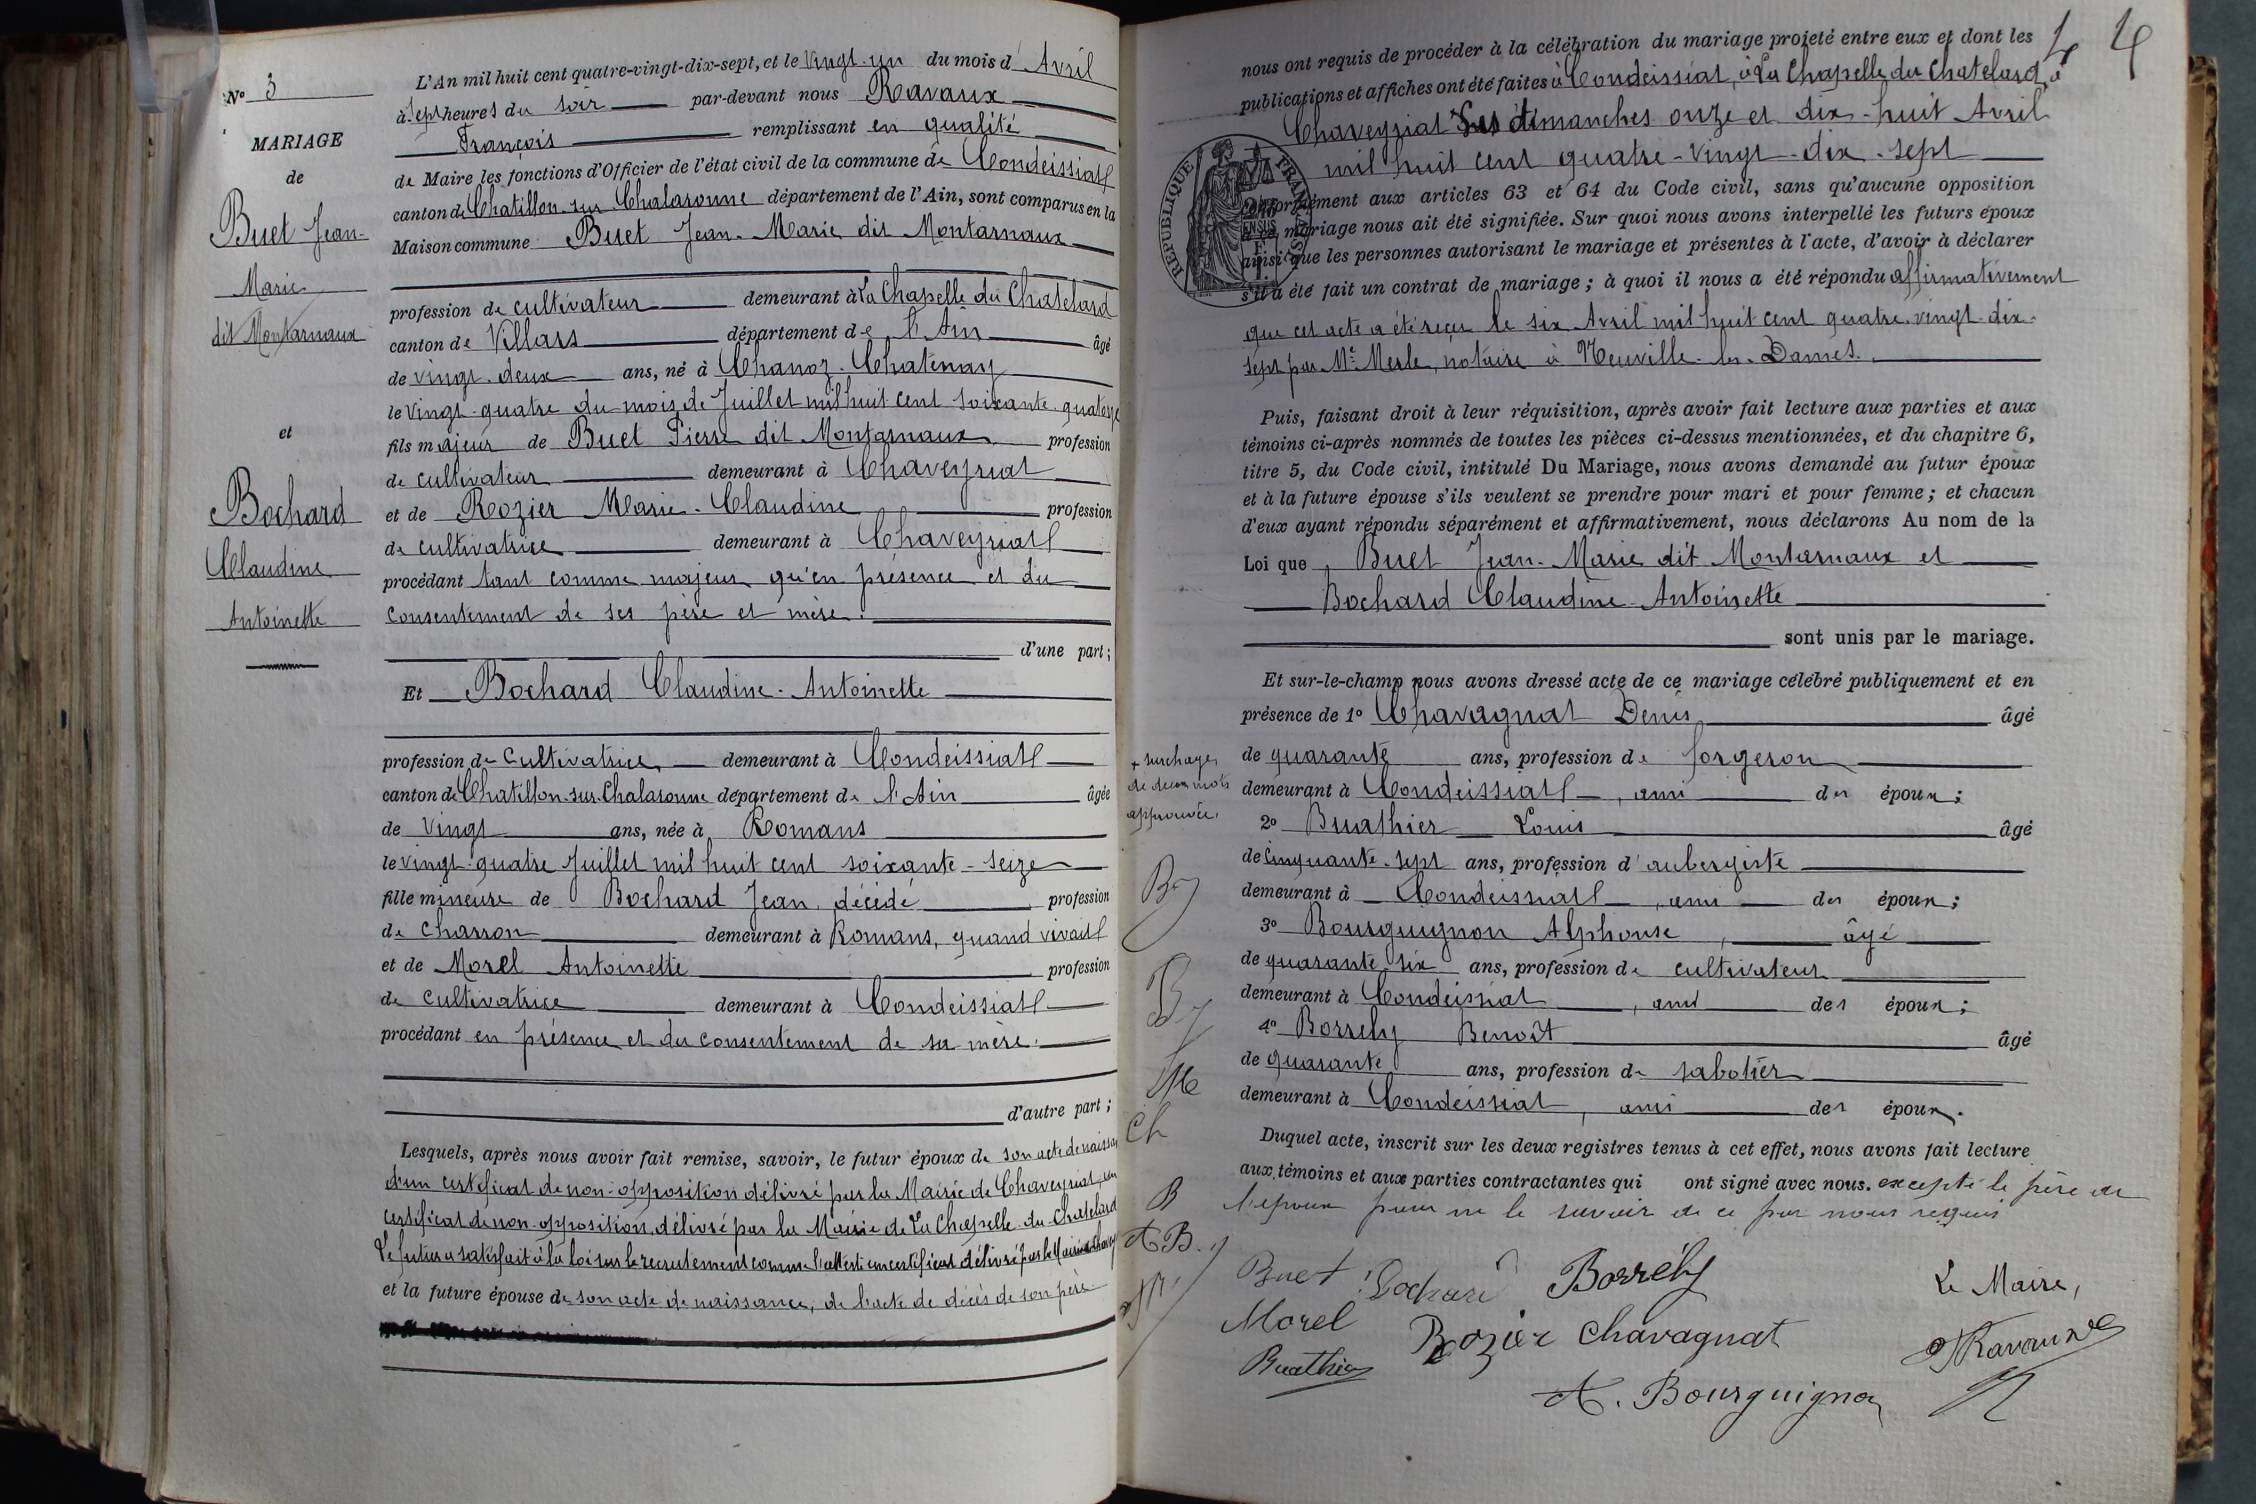 N° 3
MARIAGE
de
Buet Jean-
Marie
dit Montarnaux
et
Bochard
Claudine
Antoinette
L'An mil huit cent quatre-vingt-dix-sept, et le vingt-un du mois d'Avril
à sept heures du soir par-devant nous Ravaux
François remplissant en qualité
de Maire les fonctions d'Officier de l'état civil de la commune de Condeissiat
canton de Chatillon-sur-Chalaronne département de l'Ain, sont comparus en la
Maison commune Buet Jean-Marie dit Montarnaux
profession de cultivateur demeurant à La Chapelle du Chatelard
canton de Villars département de l'Ain âgé
de vingt-deux ans, né à Chanoz-Chatenay
le vingt-quatre du mois de Juillet mil huit cent soixante-quatorze
fils majeur de Buet Pierre dit Montarnaux profession
de cultivateur demeurant à Chaveyriat
et de Rozier Marie-Claudine profession
de cultivatrice demeurant à Chaveyriat
procédant tant comme majeur qu'en présence et du
consentement de ses père et mère.
d'une part;
Et Bochard Claudine-Antoinette
profession de Cultivatrice demeurant à Condeissiat
canton de Chatillon-sur-Chalaronne département de l'Ain âgée
de vingt ans, née à Romans
le vingt-quatre Juillet mil huit cent soixante-seize
fille mineure de Bochard Jean, décédé profession
de charron demeurant à Romans, quand vivait
et de Morel Antoinette profession
de cultivatrice demeurant à Condeissiat
procédant en présence et du consentement de sa mère.
d'autre part;
Lesquels, après nous avoir fait remise, savoir, le futur époux de son acte de naissance
d'un certificat de non-opposition délivré par la Mairie de Chaveyriat, un
certificat de non-opposition, délivré par la Mairie de La Chapelle-du-Chatelard
Le futur a satisfait à la loi sur le recrutement comme l'atteste un certificat délivré par la Mairie de
et la future épouse de son acte de naissance, de l'acte de décès de son père
4 4
nous ont requis de procéder à la célébration du mariage projeté entre eux et dont les
publications et affiches ont été faites à Condeissiat, à La Chapelle du Chatelard, à
Chaveyriat les dimanches onze et dix-huit Avril
mil huit cent quatre-vingt-dix-sept
conformément aux articles 63 et 64 du Code civil, sans qu'aucune opposition
à ce mariage nous ait été signifiée. Sur quoi nous avons interpellé les futurs époux
ainsi que les personnes autorisant le mariage et présentes à l'acte, d'avoir à déclarer
s'il a été fait un contrat de mariage; à quoi il nous a été répondu affirmativement
que cet acte a été reçu le six Avril mil huit cent quatre-vingt-dix-
sept par Me Merle, notaire à Neuville-les-Dames.
RÉPUBLIQUE FRANÇAISE
Puis, faisant droit à leur réquisition, après avoir fait lecture aux parties et aux
témoins ci-après nommés de toutes les pièces ci-dessus mentionnées, et du chapitre 6,
titre 5, du Code civil, intitulé Du Mariage, nous avons demandé au futur époux
et à la future épouse s'ils veulent se prendre pour mari et pour femme; et chacun
d'eux ayant répondu séparément et affirmativement, nous déclarons Au nom de la
Loi que Buet Jean-Marie dit Montarnaux et
Bochard Claudine-Antoinette
sont unis par le mariage.
Et sur-le-champ nous avons dressé acte de ce mariage célébré publiquement et en
présence de 1° Chavagnat Denis âgé
de quarante ans, profession de forgeron
demeurant à Condeissiat, ami des époux;
2° Buathier Louis âgé
de cinquante-sept ans, profession d'aubergiste
demeurant à Condeissiat, ami des époux;
3° Bourguignon Alphonse, âgé
de quarante-six ans, profession de cultivateur
demeurant à Condeissiat, ami des époux;
4° Borrély Benoît âgé
de quarante ans, profession de sabotier
demeurant à Condeissiat, ami des époux.
Duquel acte, inscrit sur les deux registres tenus à cet effet, nous avons fait lecture
aux témoins et aux parties contractantes qui ont signé avec nous. excepté le père de
l'époux pour ne le savoir de ce par nous requis
+ surcharges
de deux mots
approuvée.
Ch
B
AB.
Buet Bochard Borrély
Le Maire,
Morel Rozier Chavagnat
Ravaux
Buathier
A. Bourguignon